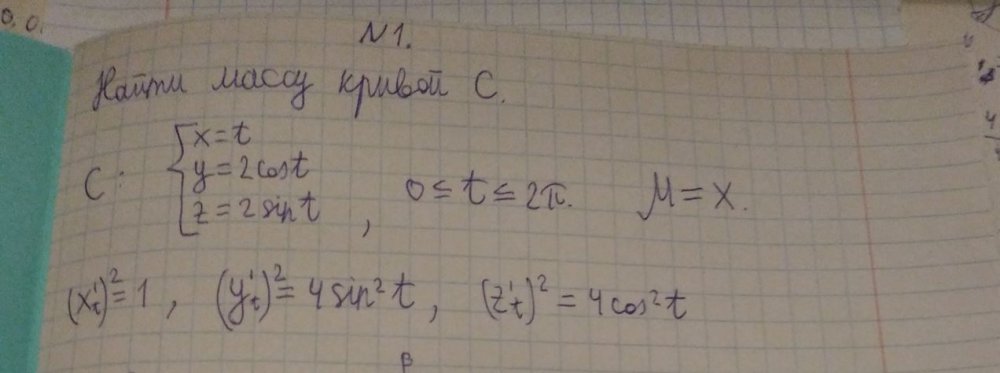 0. 0.
N1.
Найти массу кривой C.
x=t
y=2cost
C: z=2sint, 0≤t≤2π. M=x.
(x't)²=1, (y't)²=4sin²t, (z't)²=4cos²t
β